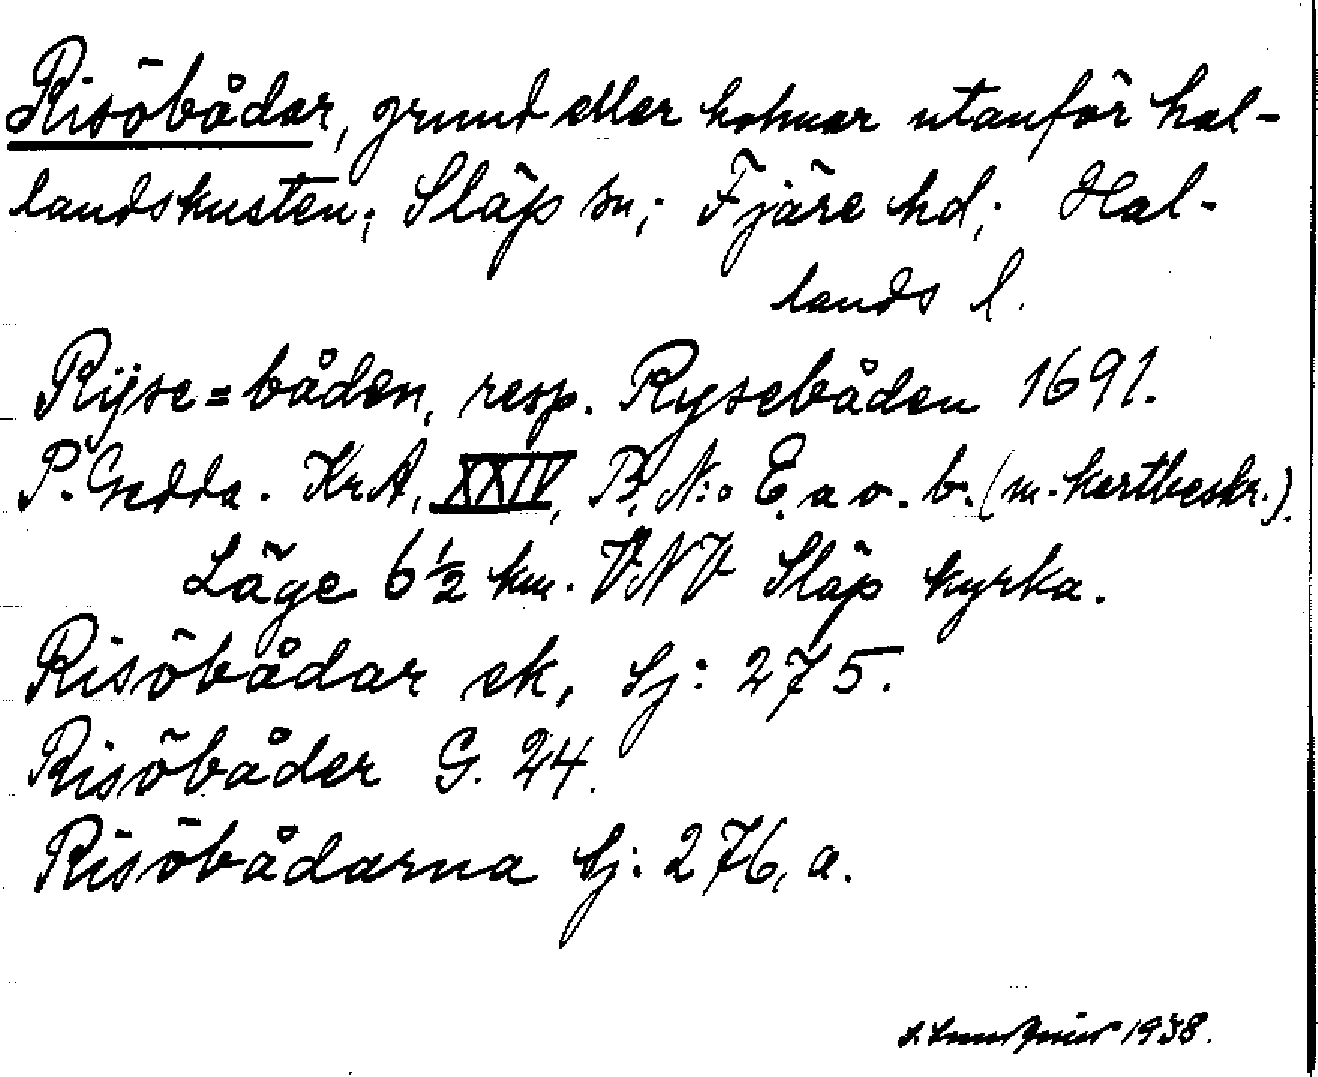 Risöbådar, grund eller holmar utanför hal-
landskusten; Släp sn; Fjäre hd; Hal-
lands l.
Rÿse=båden, resp. Rysebåden 1691.
P. Gedda. Kr.A, XXIV, B, N:o E. a o. b. (m. kartbeskr.).
Läge 6½ km. VNV Släp kyrka.
Risöbådar ek, sj: 275.
Risöbåder G. 24.
Risöbådarna sj: 276, a.
1938.